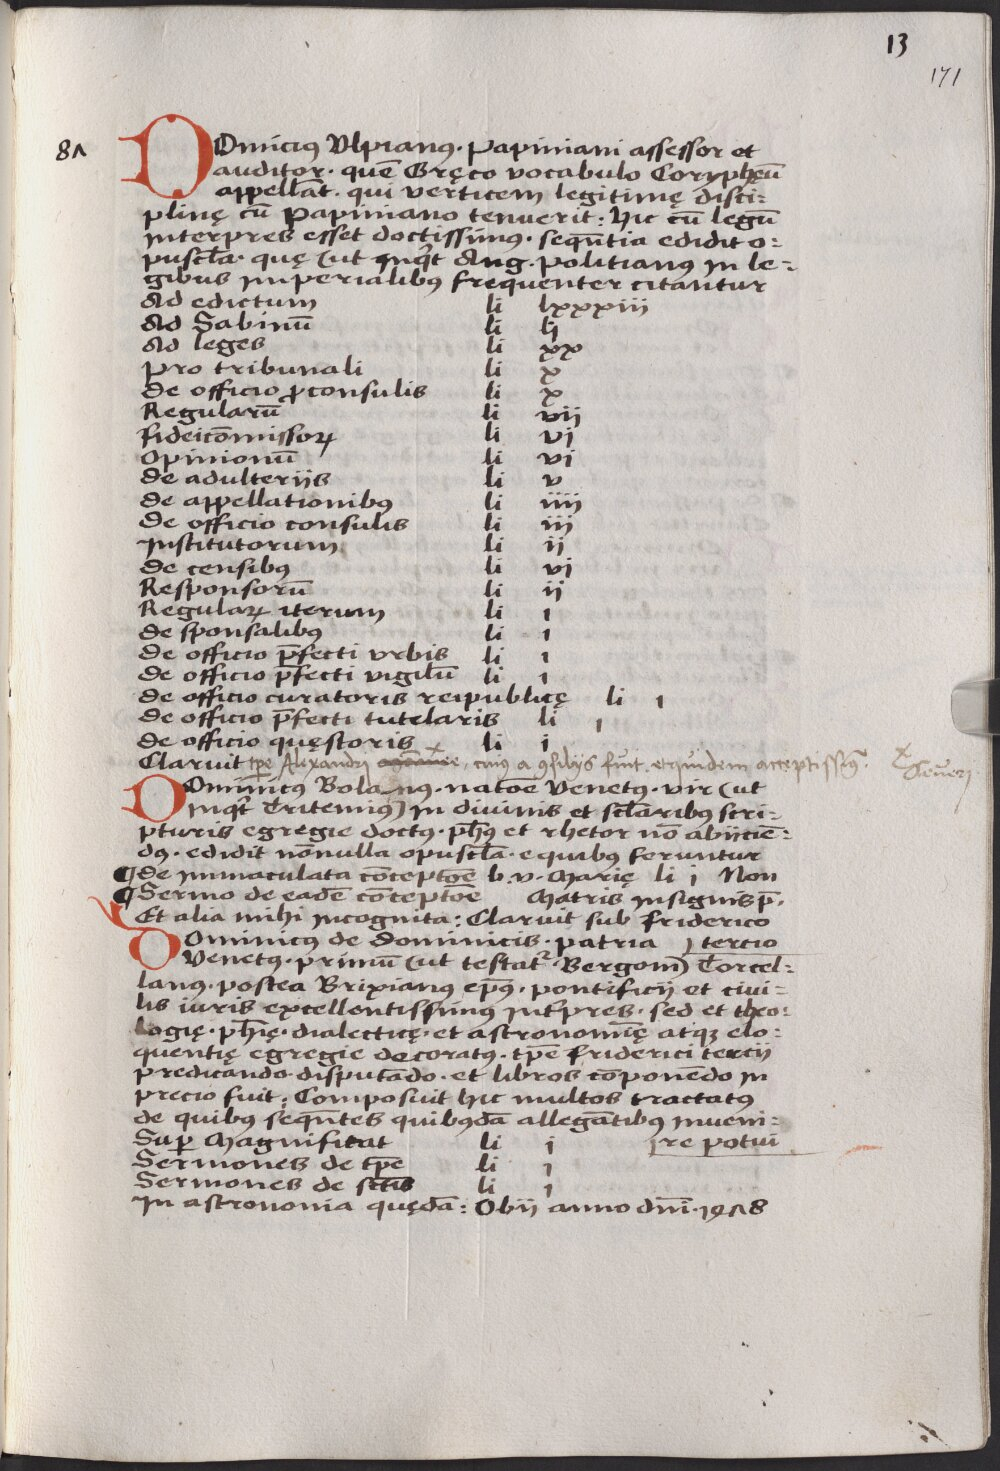 13
171
87
DOmiciꝰ Vlpianꝰ · Papiniani assessor et
auditor · quē Gręco vocabulo Coryphęū
appellāt · qui verticem legitimę disci=
plinę cū Papiniano tenuerit : hic cū legū
interpres esset doctissimꝰ · seqn̄tia edidit o=
puscl̄a · quę (ut inq̄t Ang. Politianꝰ in le=
gibus imperialibꝰ frequenter citantur
Ad edictum li lxxxiii
Ad Sabinū li lj
Ad leges li xx
Pro tribunali li x
De officio ꝓconsulis li x
Regularū li vii
fideicōmissoꝝ li vj
Opinionū li vi
De adulteriis li v
De appellationibꝰ li iiii
De officio consulis li iij
Institutorum li ij
De censibꝰ li vj
Responsorū li ij
Regulaꝝ iterum li i
De sponsalibꝰ li i
De officio p̄fecti vrbis li i
De officio p̄fecti vigilū li i
De officio curatoris reipublicę li i
De officio p̄fecti tutelaris li i
De officio quęstoris li i
Claruit tp̄e Alexandri x, cuiꝰ a ꝯsiliis fuit et quidem acceptissimꝰ. x Seueri
DOminicꝰ Bolanꝰ · natōe Venetꝰ · vir (ut
inq̄t Tritemiꝰ) in diuinis et scl̄aribꝰ scri=
pturis egregie doctꝰ · ph̄ꝰ et rhetor nō abiiciē=
dꝰ · edidit nōnulla opuscl̄a · e quibꝰ feruntur
¶ De immaculata cōceptōe b. v. Marię li i Non
¶ Sermo de eadē cōceptōe Matris insignis p̄.
Et alia mihi incognita : Claruit sub friderico
DOminicꝰ de dominicis · patria tercio
Venetꝰ · primū (ut testat᷑ Bergom̄) Torcel=
lanꝰ · postea Brixianꝰ ep̄ꝰ · pontificij et ciui=
lis iuris excellentissimꝰ int̄pres · sed et theo=
logię · ph̄ię · dialecticę · et astronomię atqꝫ elo=
quentię egregie decoratꝰ · tp̄e friderici tercij
predicando · disputādo · et libros cōponēdo in
precio fuit : Composuit hic multos tractatꝰ
de quibꝰ seqn̄tes quibꝰdā allegātibꝰ inueni=
Suꝑ Magnificat li i re potui
Sermones de tp̄e li i
Sermones de sctīs li i
In astronomia quędā : Obij anno dn̄i · 1478